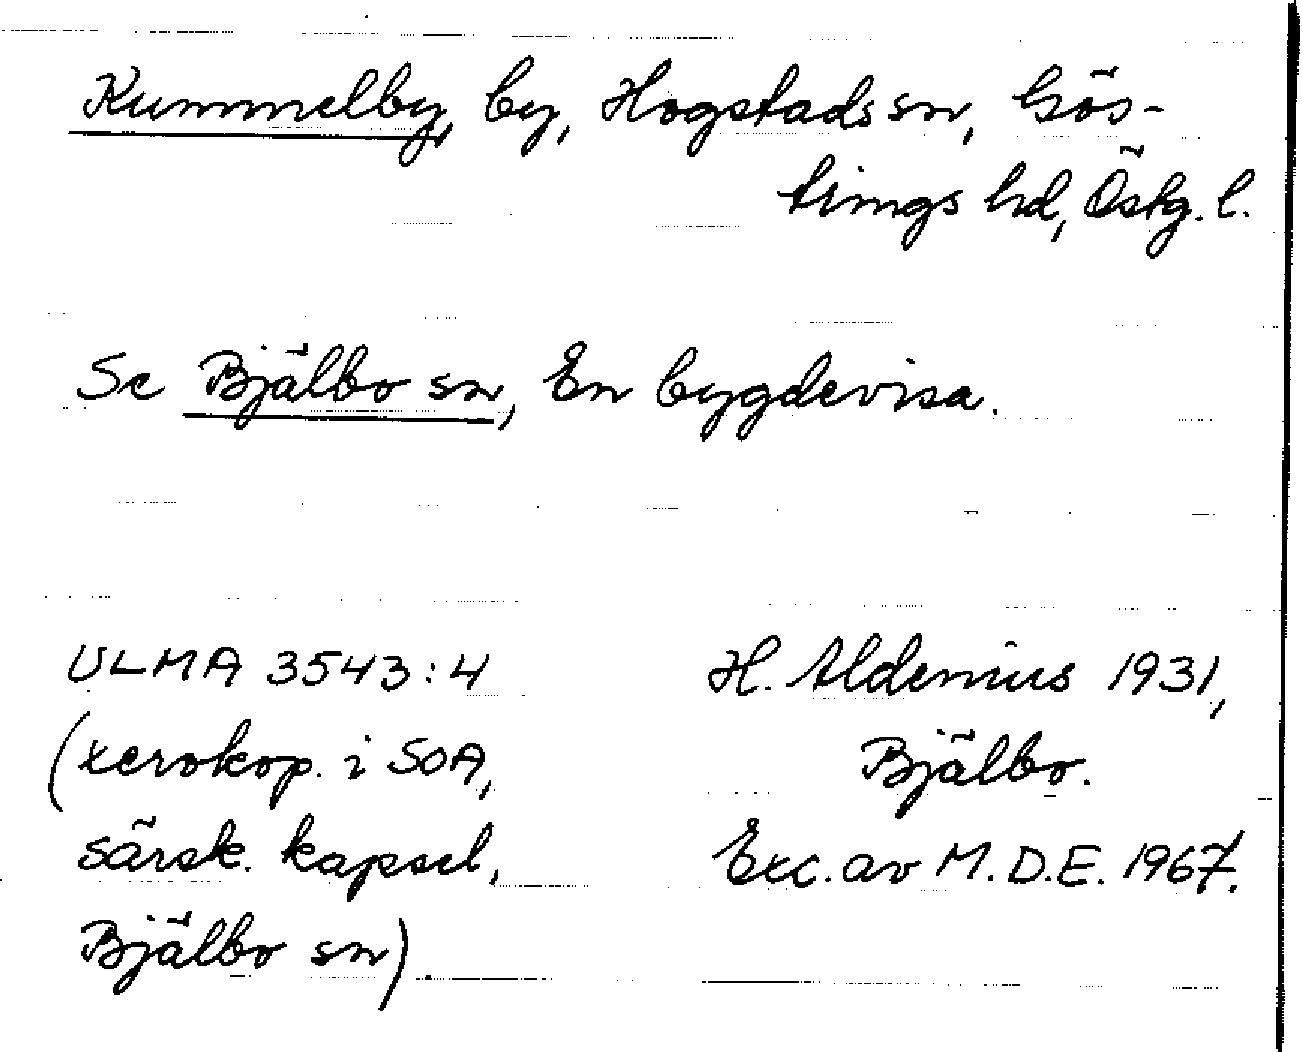 Kummelby, by, Hogstads sn, Gös-
tings hd, Östg. l.
Se Bjälbo sn, En bygdevisa.
ULMA 3543:4
(xerokop. i SOA,
särsk. kapsel,
Bjälbo sn).
H. Aldenius 1931,
Bjälbo.
Exc. av M.D.E. 1967.